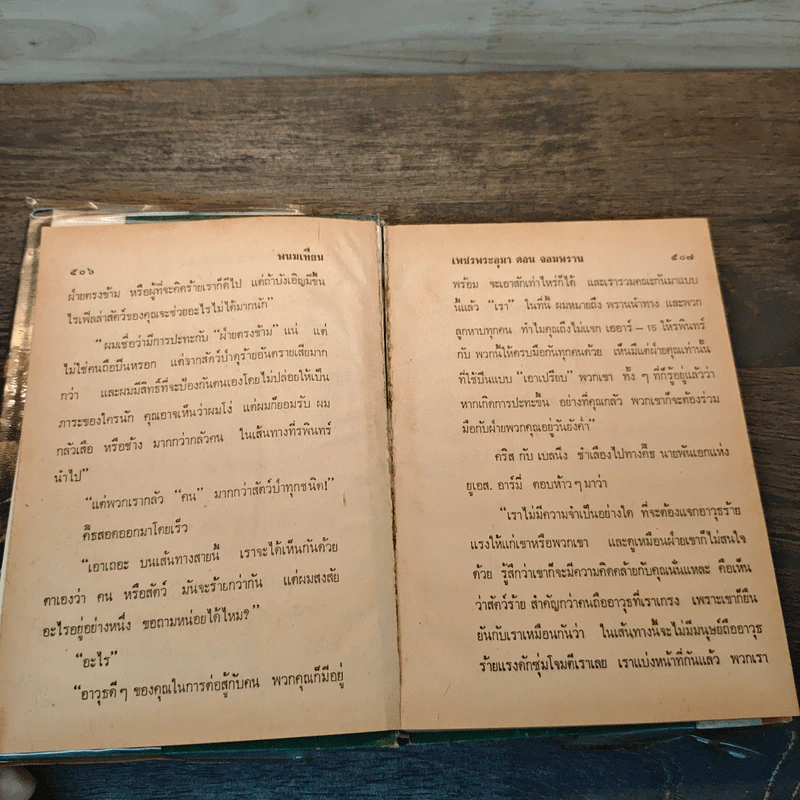 ๕๐๖
พนมเทียน
ฝ่ายตรงข้าม หรือผู้ที่จะคิดร้ายเราก็ดีไป แต่ถ้าบังเอิญมีขึ้น
ไรเฟิลล่าสัตว์ของคุณจะช่วยอะไรไม่ได้มากนัก”
“ผมเชื่อว่ามีการปะทะกับ “ฝ่ายตรงข้าม” แน่ แต่
ไม่ใช่คนถือปืนหรอก แต่จากสัตว์ป่าดุร้ายอันตรายเสียมาก
กว่า และผมมีสิทธิ์ที่จะป้องกันตนเองโดยไม่ปล่อยให้เป็น
ภาระของใครนัก คุณอาจเห็นว่าผมโง่ แต่ผมก็ยอมรับ ผม
กลัวเสือ หรือช้าง มากกว่ากลัวคน ในเส้นทางที่รพินทร์
นำไป”
“แต่พวกเรากลัว “คน” มากกว่าสัตว์ป่าทุกชนิด!”
คิธสอดออกมาโดยเร็ว
“เอาเถอะ บนเส้นทางสายนี้ เราจะได้เห็นกันด้วย
ตาเองว่า คน หรือสัตว์ มันจะร้ายกว่ากัน แต่ผมสงสัย
อะไรอยู่อย่างหนึ่ง ขอถามหน่อยได้ไหม?”
“อะไร”
“อาวุธดีๆ ของคุณในการต่อสู้กับคน พวกคุณก็มีอยู่
เพชรพระอุมา ตอน จอมพราน
๕๐๗
พร้อม จะเอาสักเท่าไหร่ก็ได้ และเรารวมคณะกันมาแบบ
นี้แล้ว “เรา” ในที่นี้ ผมหมายถึง พรานนำทาง และพวก
ลูกหาบทุกคน ทำไมคุณถึงไม่แจก เออาร์ – 15 ให้รพินทร์
กับ พวกนี้ให้ครบมือกันทุกคนด้วย เห็นมีแต่ฝ่ายคุณเท่านั้น
ที่ใช้ปืนแบบ “เอาเปรียบ” พวกเขา ทั้ง ๆ ที่ก็รู้อยู่แล้วว่า
หากเกิดการปะทะขึ้น อย่างที่คุณกลัว พวกเขาก็จะต้องร่วม
มือกับฝ่ายพวกคุณอยู่วันยังค่ำ”
คริส กับ เบลนีง ชำเลืองไปทางคิธ นายพันเอกแห่ง
ยูเอส. อาร์มี่ ตอบห้าวๆ มาว่า
“เราไม่มีความจำเป็นอย่างใด ที่จะต้องแจกอาวุธร้าย
แรงให้แก่เขาหรือพวกเขา และดูเหมือนฝ่ายเขาก็ไม่สนใจ
ด้วย รู้สึกว่าเขาก็จะมีความคิดคล้ายกับคุณนั่นแหละ คือเห็น
ว่าสัตว์ร้าย สำคัญกว่าคนถืออาวุธที่เราเกรง เพราะเขาก็ยืน
ยันกับเราเหมือนกันว่า ในเส้นทางนี้จะไม่มีมนุษย์ถืออาวุธ
ร้ายแรงดักซุ่มโจมตีเราเลย เราแบ่งหน้าที่กันแล้ว พวกเรา